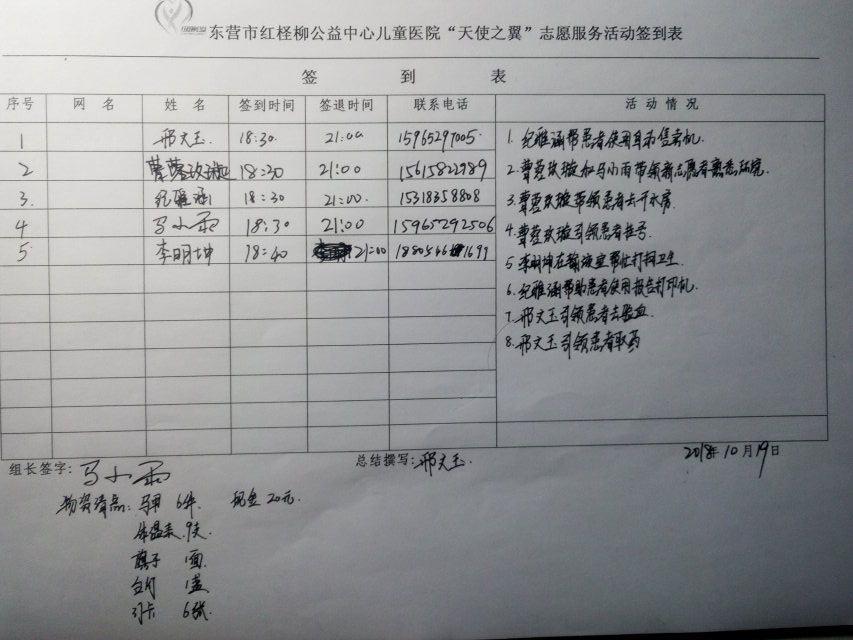 东营市红柽柳公益中心儿童医院“天使之翼”志愿服务活动签到表
签 到 表
序号 网 名 姓 名 签到时间 签退时间 联系电话 活 动 情 况
1 邢文玉 18:30. 21:00 15965297005.
2 曹蓉玖璇 18:30 21:00 15615822989
3. 纪雅涵 18:30 21:00. 15318358808
4 马小雨 18:30 21:00 15965292506
5 李明坤 18:40 21:00 18805461699
1. 纪雅涵带患者使用自动售货机.
2. 曹蓉玖璇和马小雨带领新志愿者熟悉环境.
3. 曹蓉玖璇带领患者去开水房.
4. 曹蓉玖璇引领患者挂号
5 李明坤在输液室帮忙打扫卫生.
6. 纪雅涵帮助患者使用报告打印机.
7. 邢文玉引领患者去验血.
8. 邢文玉引领患者取药
组长签字: 马小雨 总结撰写: 邢文玉. 2018年10月19日
物资清点: 马甲 6件. 现金 20元.
体温表. 9支.
旗子 1面.
台灯 1盏
胸卡 6张.